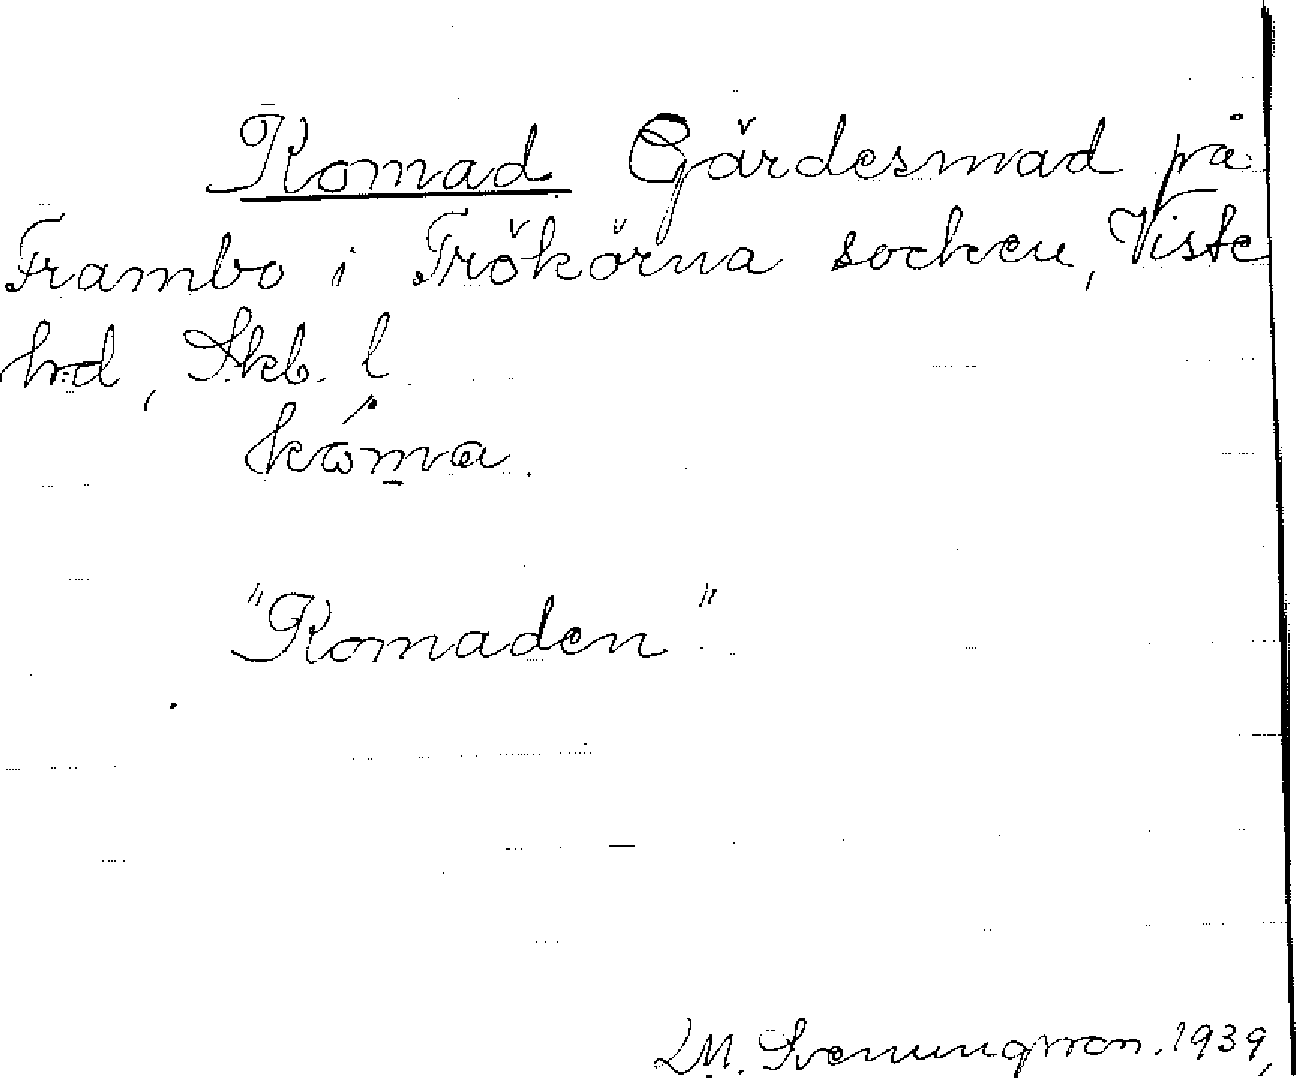 Komad Gärdesmad på
Frambo i Frökörna socken, Viste
hd, Skb. l
kóma.
"Komaden".
L M. Svenungsson. 1939,